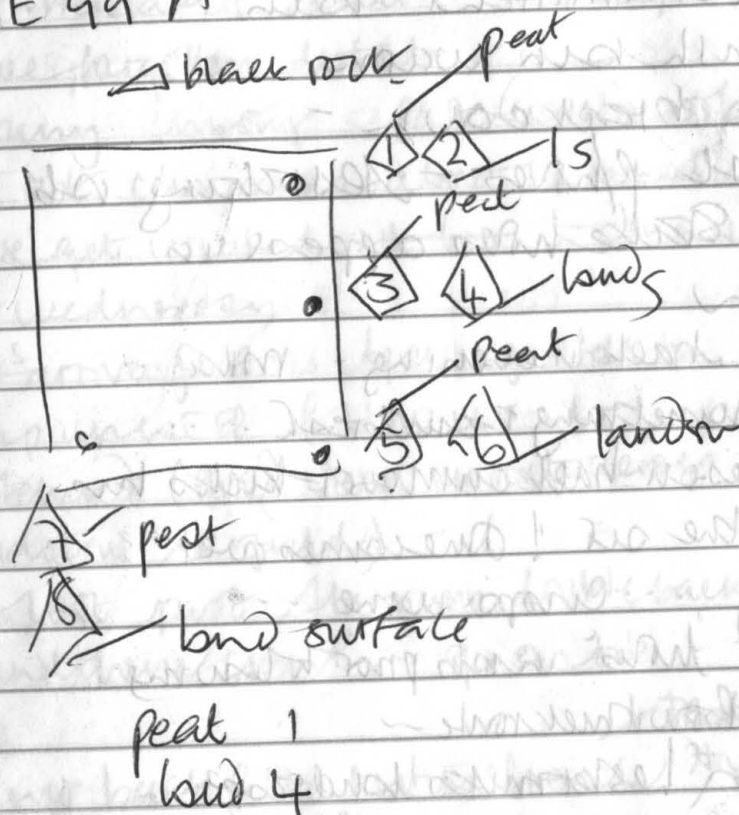 E 99
black rock
peat
1 2 ls
peat
3 4 lands
peat
5 6 landsu
7 peat
8 land surface
peat 1
land 4